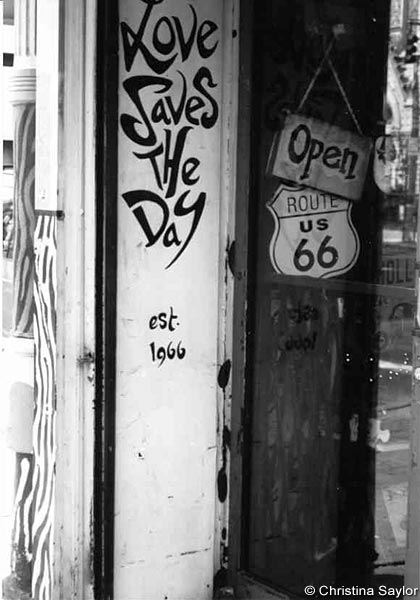 Love
Saves
The
Day
est.
1966
Open
ROUTE
US
66
© Christina Saylor